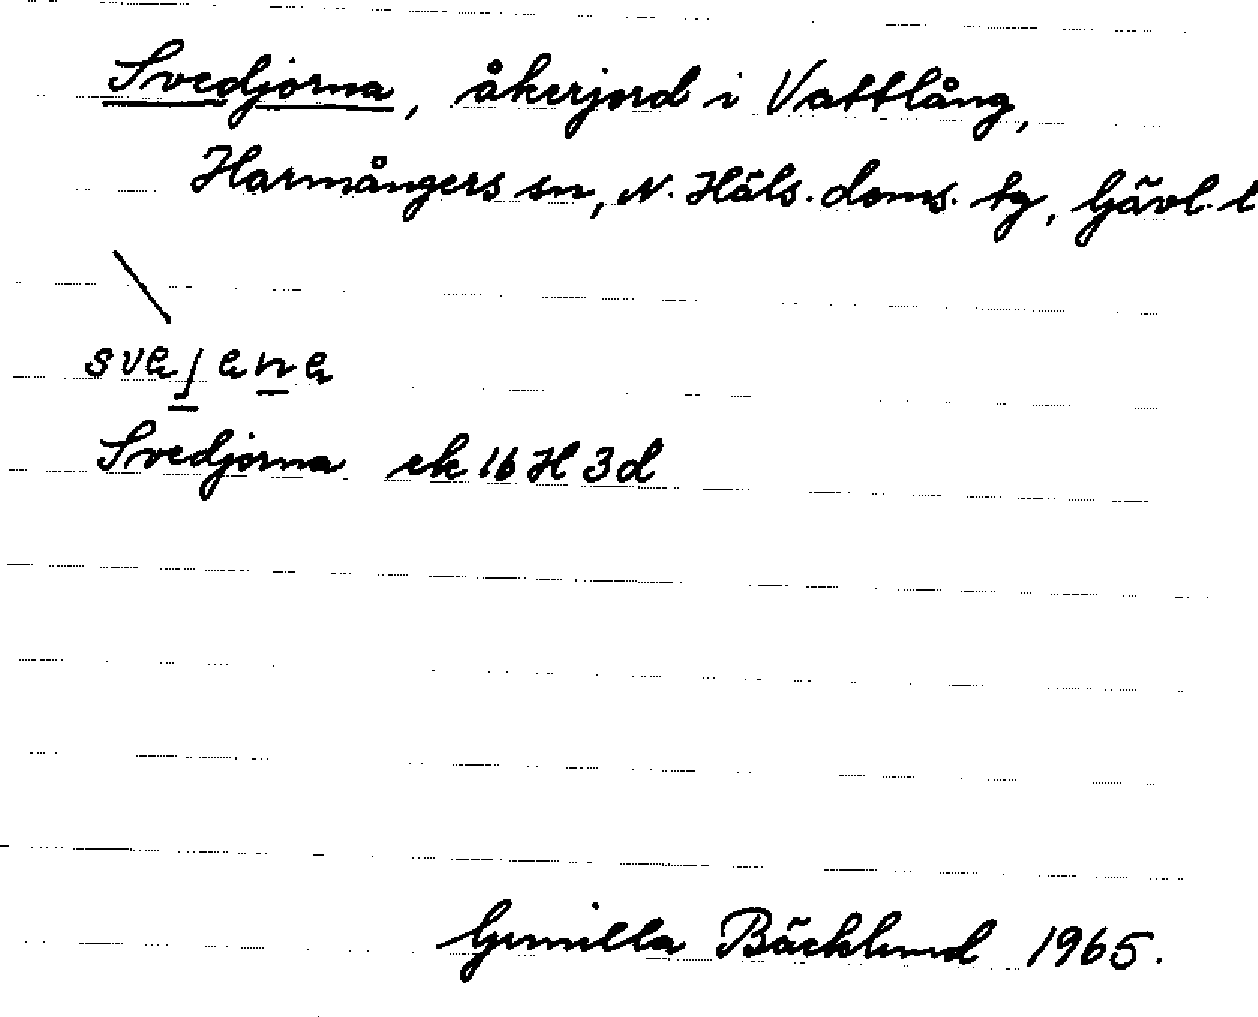 Svedjorna, åkerjord i Vattlång,
Harmångers sn, N. Häls. doms. tg, Gävl. l
Svedjorna ek 16 H 3d
Gunilla Bäcklund 1965.